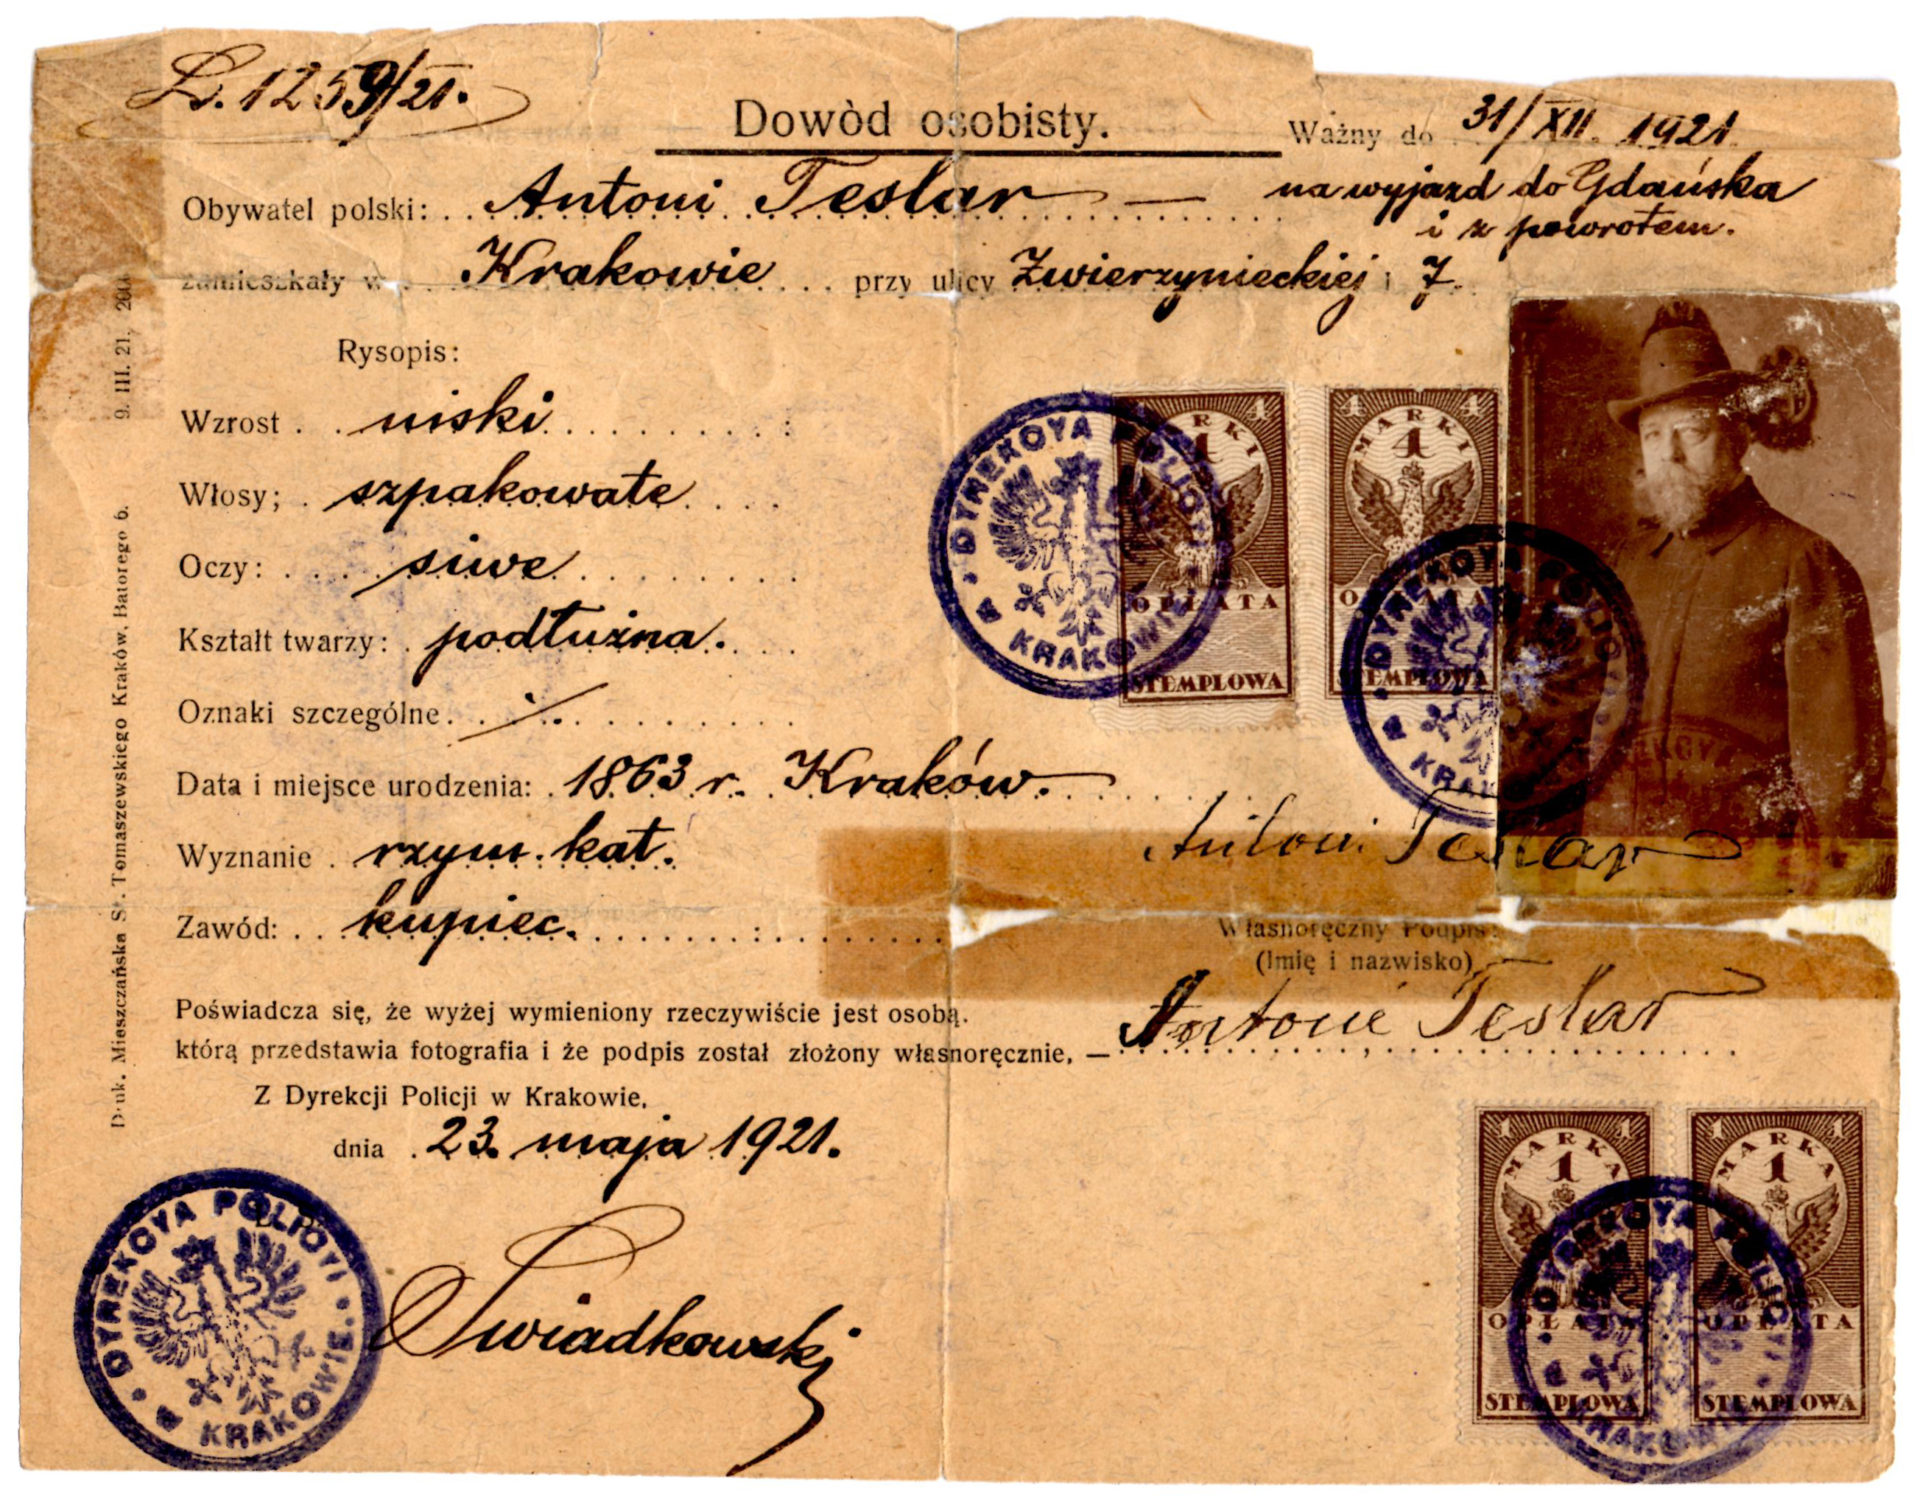 L. 1259/21.
Dowòd osobisty.
Ważny do 31/XII. 1921
Obywatel polski: Antoni Teslar — na wyjazd do Gdańska
i z powrotem.
zamieszkały w Krakowie przy ulicy Zwierzynieckiej l 7.
Rysopis:
Wzrost niski
Włosy; szpakowate
Oczy: siwe
Kształt twarzy: podłużna.
Oznaki szczególne ./.
Data i miejsce urodzenia: 1863 r. Kraków.
Wyznanie rzym. kat.
Zawód: kupiec.
Poświadcza się, że wyżej wymieniony rzeczywiście jest osobą.
którą przedstawia fotografia i że podpis został złożony własnoręcznie, —
Z Dyrekcji Policji w Krakowie,
dnia 23. maja 1921.
Swiadkowski
DYREKCYA POLICYI
W KRAKOWIE
9. III. 21.
Druk. Mieszczańska St. Tomaszewskiego Kraków, Batorego 6.
DYREKCYA POLICYI
W KRAKOWIE
MARKI
4
OPŁATA
STEMPLOWA
MARKI
4
OPŁATA
STEMPLOWA
DYREKCYA POLICYI
W KRAKOWIE
Antoni Teslar
Własnoręczny Podpis:
(Imię i nazwisko)
Antoni Teslar
MARKA
1
OPŁATA
STEMPLOWA
MARKA
1
OPŁATA
STEMPLOWA
DYREKCYA POLICYI
W KRAKOWIE